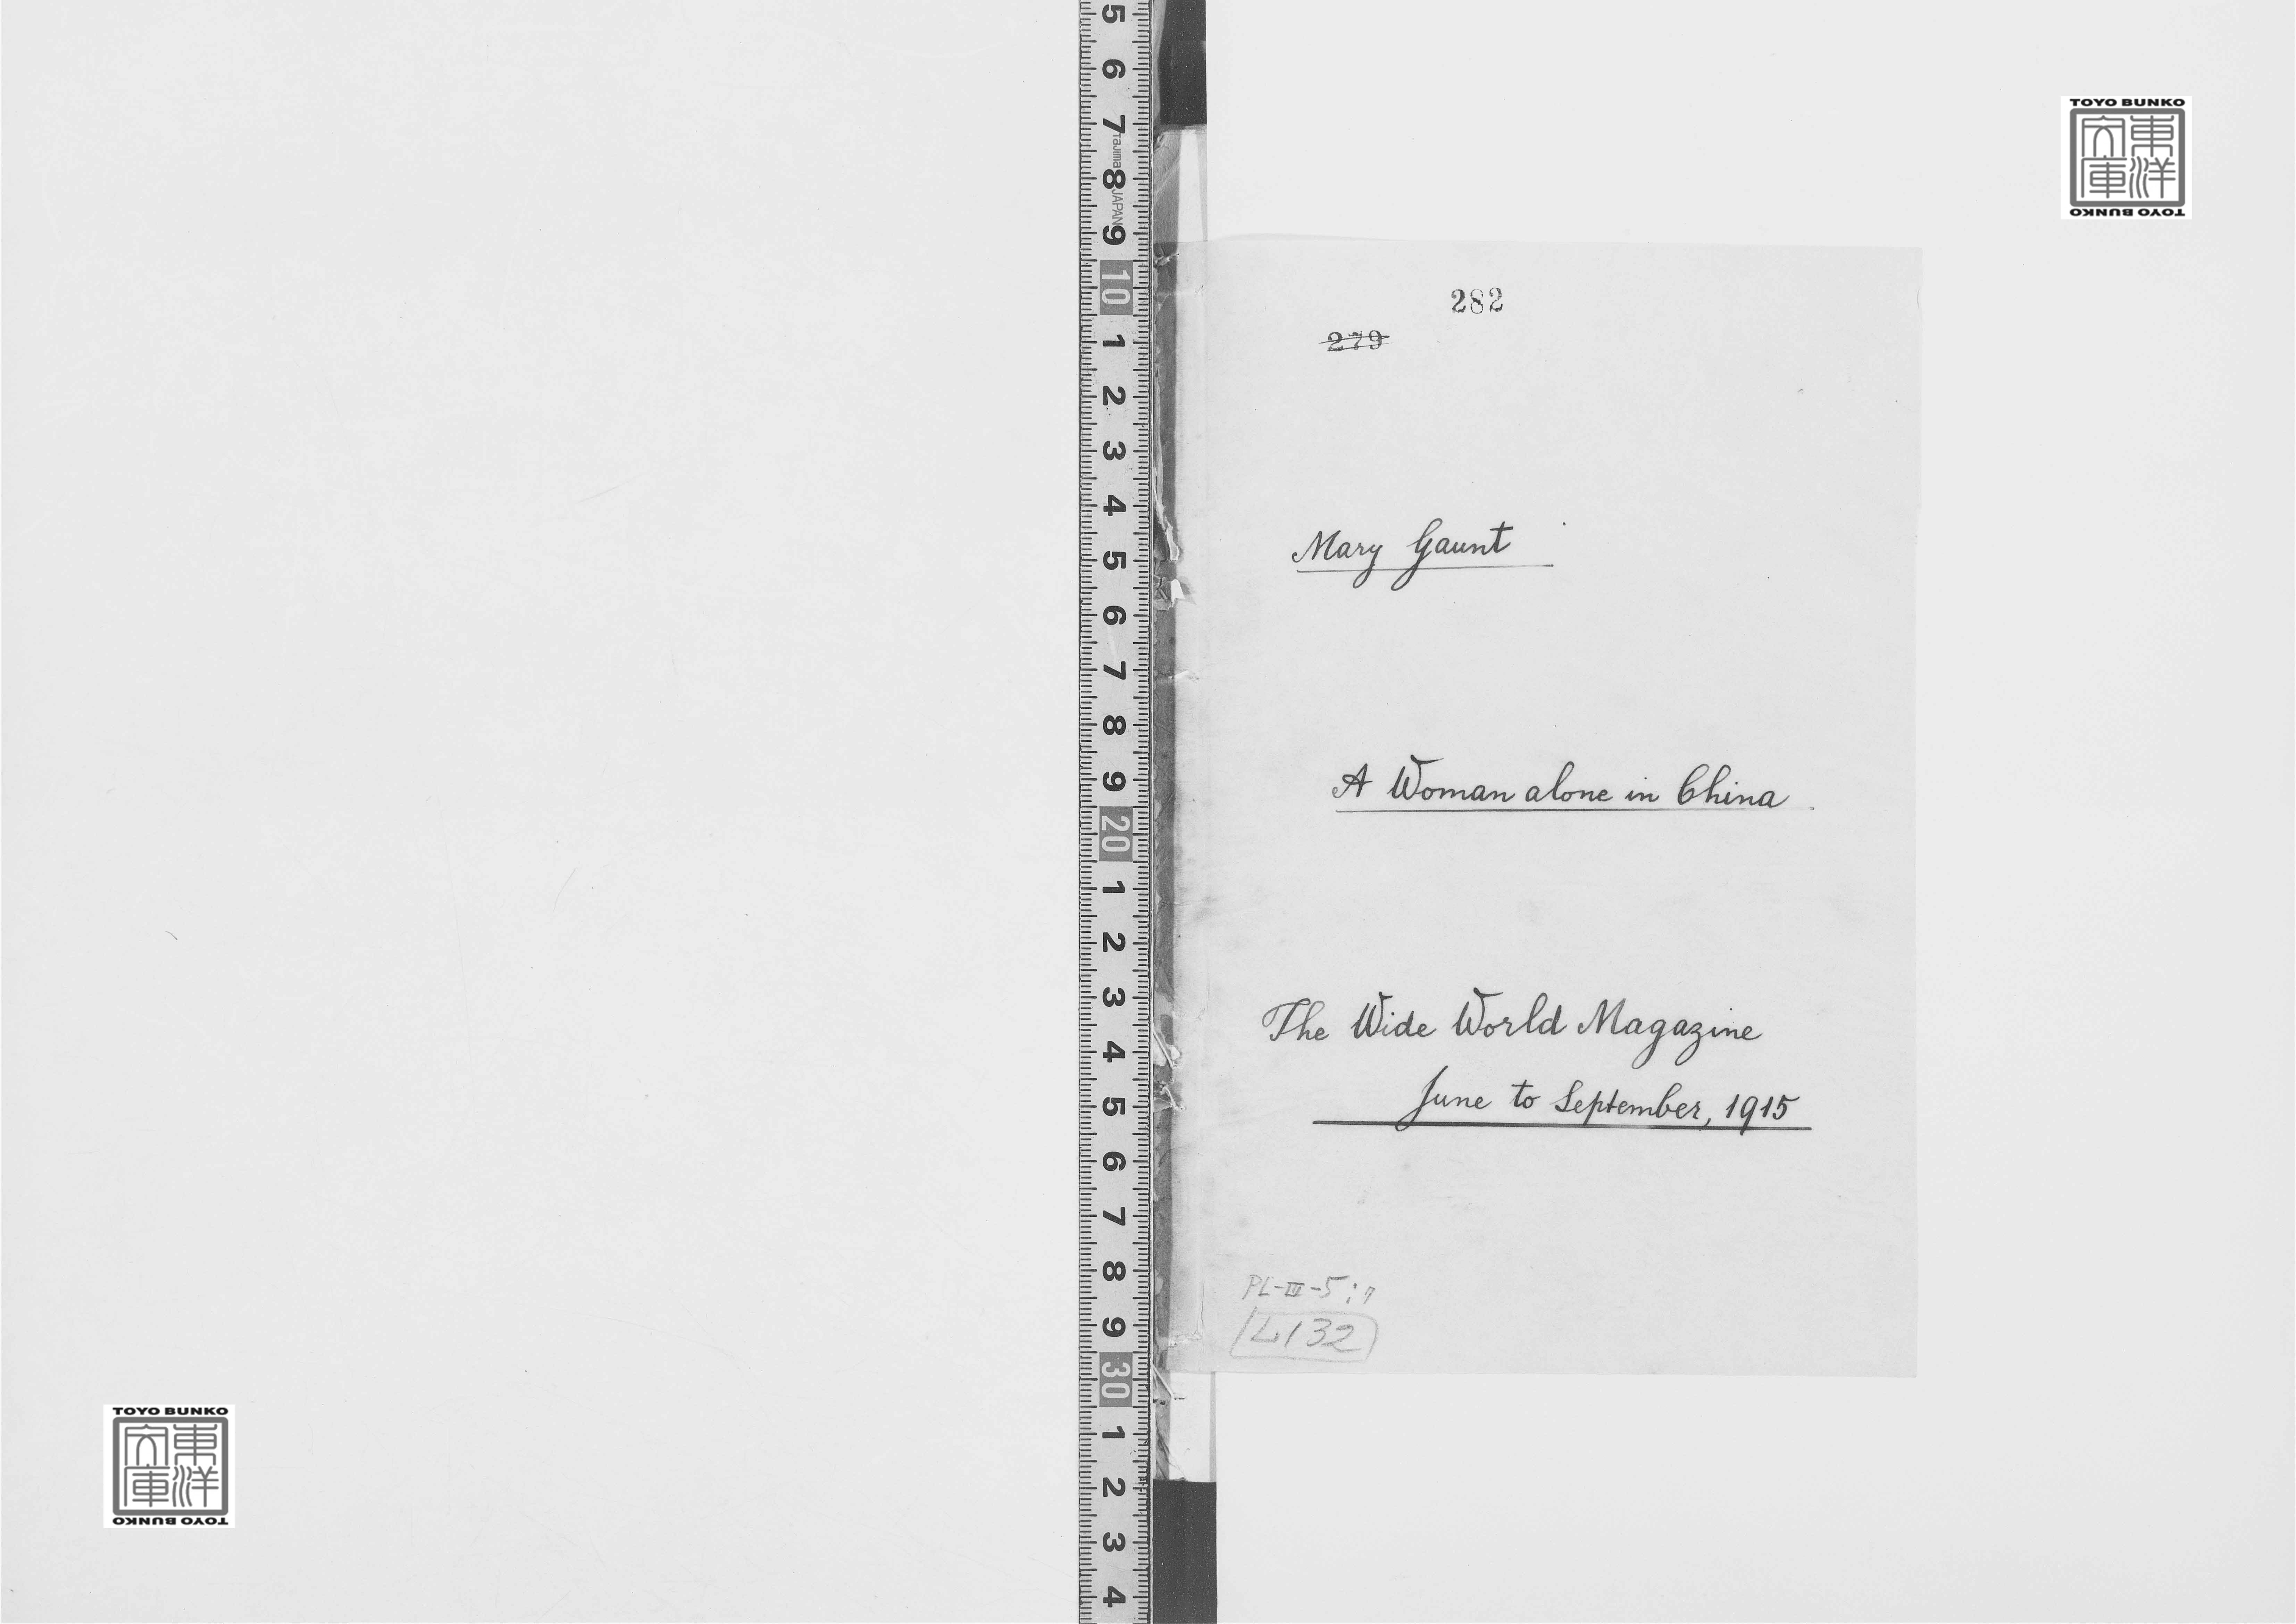 5
6
7
Tajima
8
JAPAN
9
10
1
2
3
4
5
6
7
8
9
20
1
2
3
4
5
6
7
8
9
30
1
2
3
4
TOYO BUNKO
東洋
文庫
TOYO BUNKO
282
279
Mary Gaunt
A Woman alone in China
The Wide World Magazine
June to September, 1915
PL-III-5;7
L132
TOYO BUNKO
東洋
文庫
TOYO BUNKO